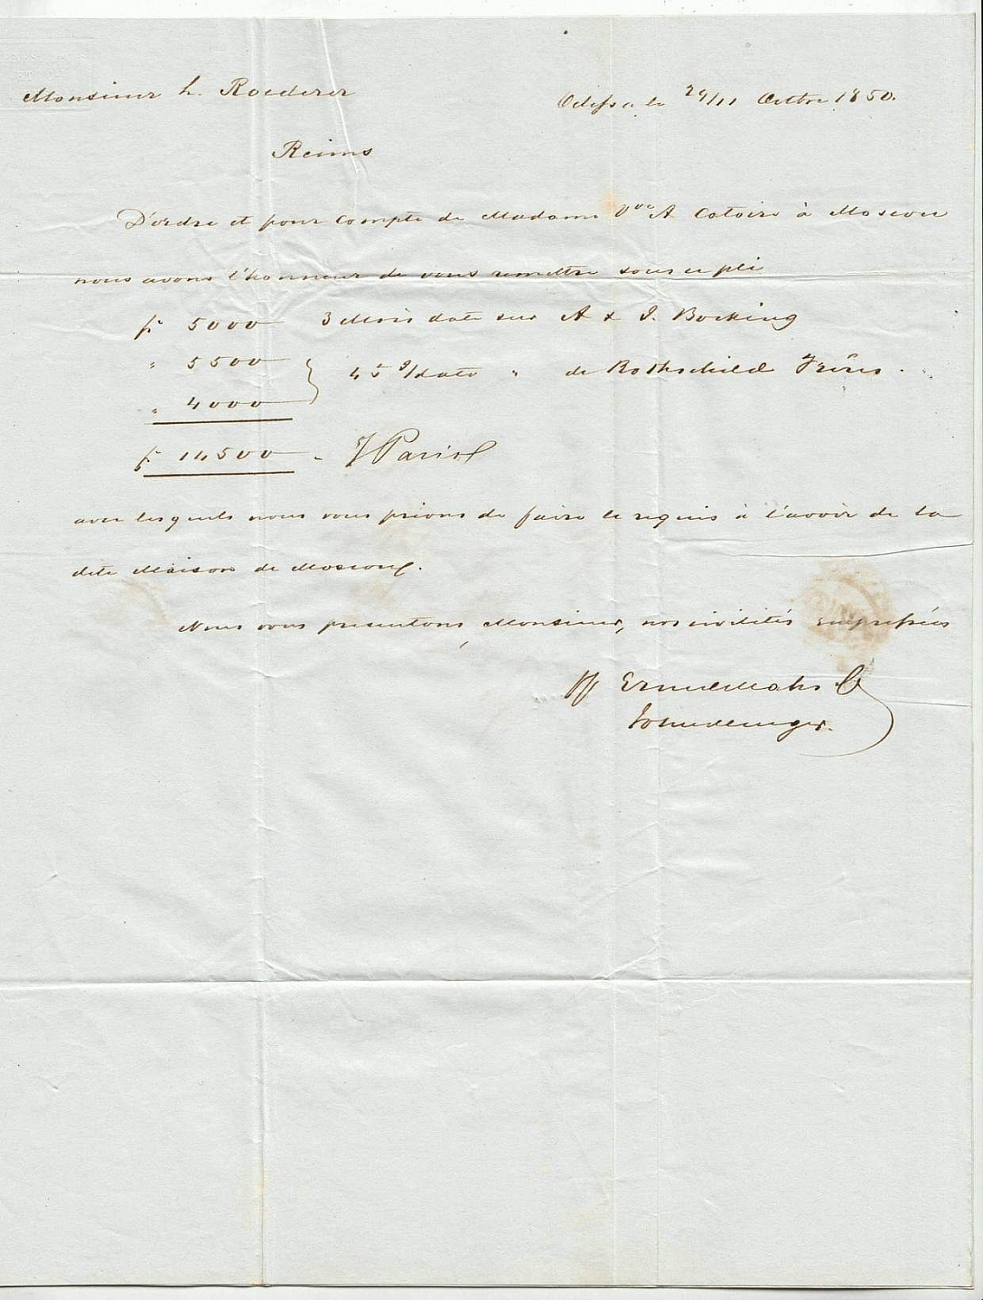 Monsieur L. Roederer
Odessa le 29/11 Octbre 1850.
Reims
D'ordre et pour compte de Madame Vve A Catoire à Moscou
nous avons l'honneur de vous remettre sous ce pli
fr 5000 3 Mois date sur A & J. Bocking
" 5500
45 J/date " de Rothschild Frères.
" 4000
fr 14500 - s/Paris
avec lesquels nous vous prions de faire le requis à l'avoir de la
dite Maison de Moscou.
Nous vous présentons, Monsieur, nos civilités empressées
pp Ernes Mahs Co